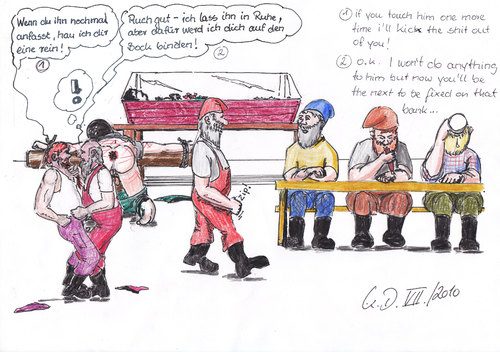 Wenn du ihn nochmal
anfasst, hau ich dir
eine rein!
1
Ruhig gut - ich lass ihn in Ruhe,
aber dafür werd ich dich auf den
Bock binden!
2
!
zip!
1 if you touch him one more
time i'll kick the shit out
of you!
2 o.k. I won't do anything
to him but now you'll be
the next to be fixed on that
bank...
G.D. VII./2010